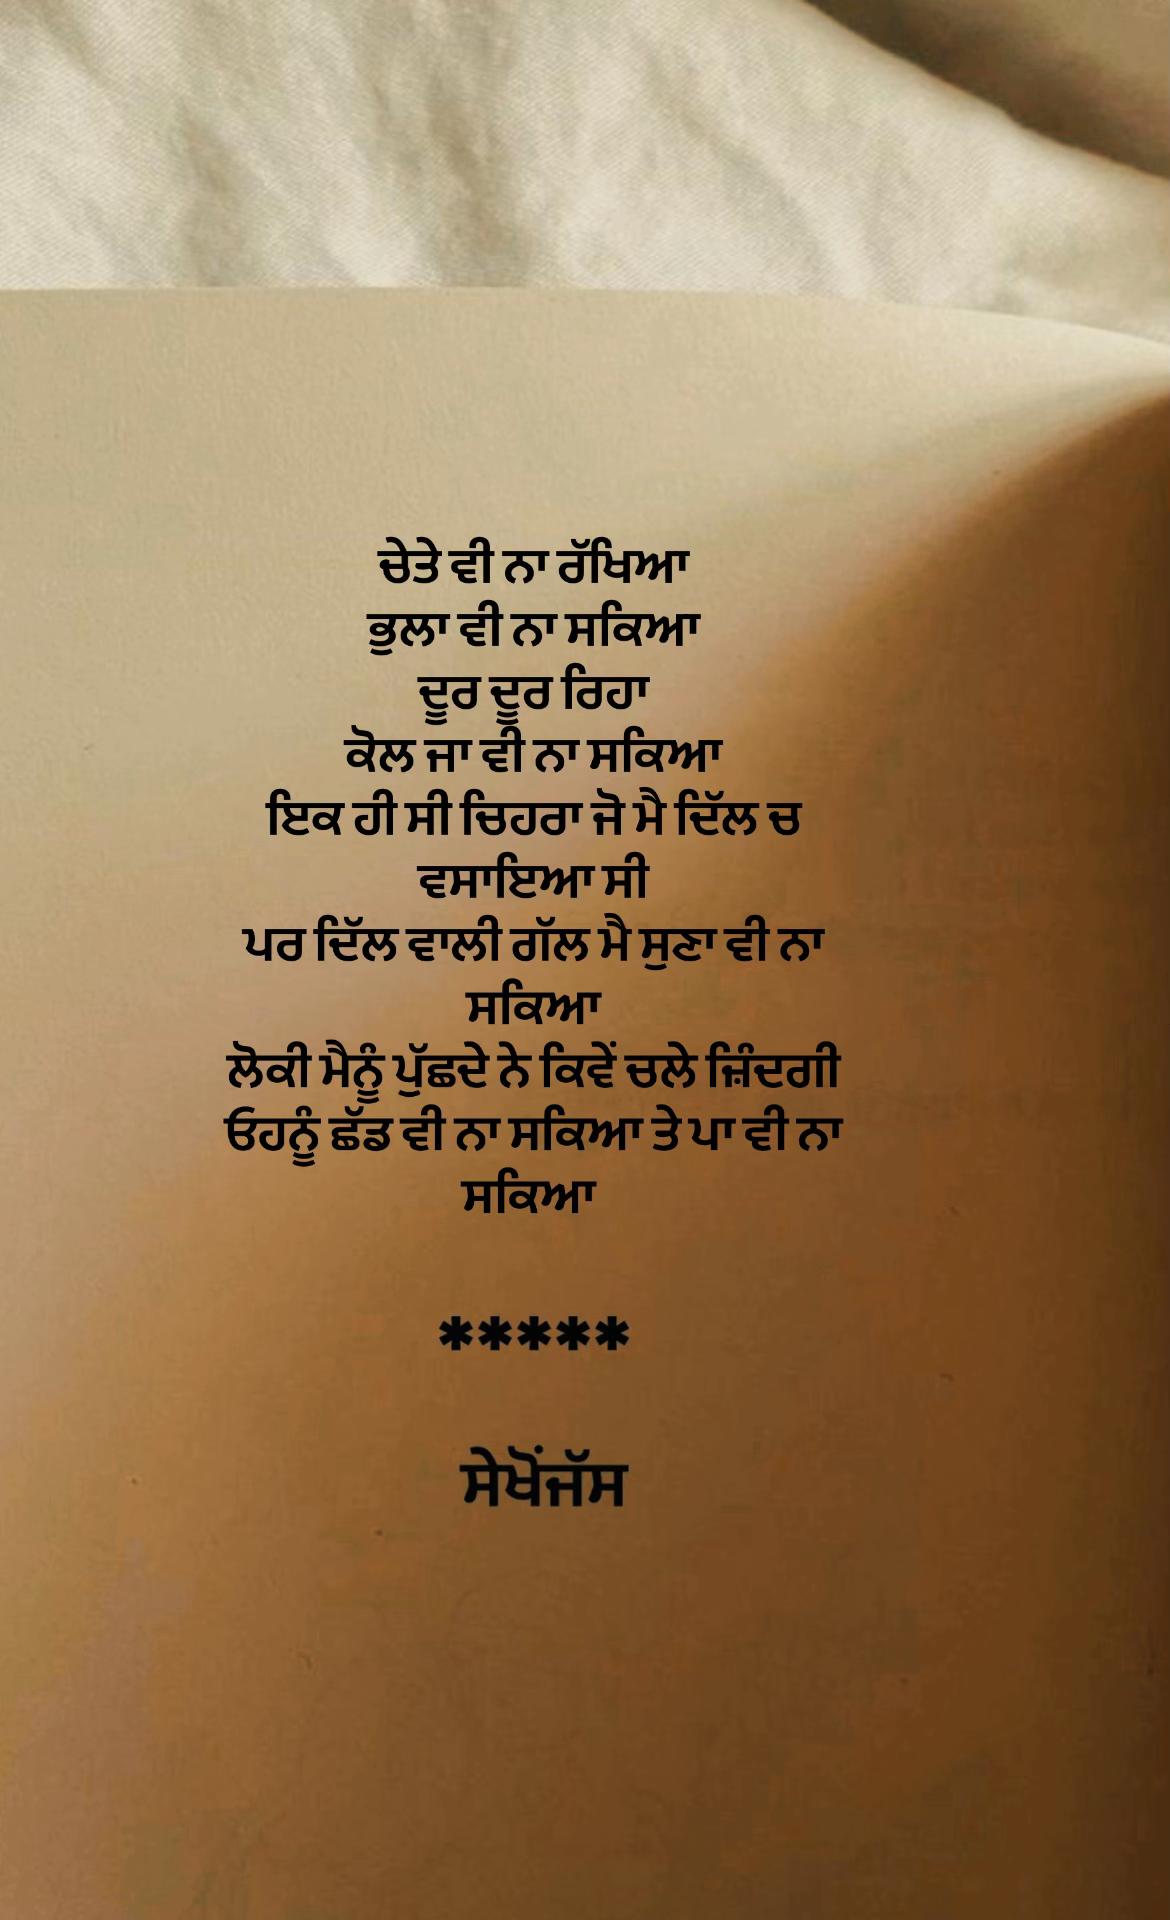 ਚੇਤੇ ਵੀ ਨਾ ਰੱਖਿਆ
ਭੁਲਾ ਵੀ ਨਾ ਸਕਿਆ
ਦੂਰ ਦੂਰ ਰਿਹਾ
ਕੋਲ ਜਾ ਵੀ ਨਾ ਸਕਿਆ
ਇਕ ਹੀ ਸੀ ਚਿਹਰਾ ਜੋ ਮੈ ਦਿੱਲ ਚ
ਵਸਾਇਆ ਸੀ
ਪਰ ਦਿੱਲ ਵਾਲੀ ਗੱਲ ਮੈ ਸੁਣਾ ਵੀ ਨਾ
ਸਕਿਆ
ਲੋਕੀ ਮੈਨੂੰ ਪੁੱਛਦੇ ਨੇ ਕਿਵੇਂ ਚਲੇ ਜ਼ਿੰਦਗੀ
ਓਹਨੂੰ ਛੱਡ ਵੀ ਨਾ ਸਕਿਆ ਤੇ ਪਾ ਵੀ ਨਾ
ਸਕਿਆ
*****
ਸੇਖੋਂਜੱਸ